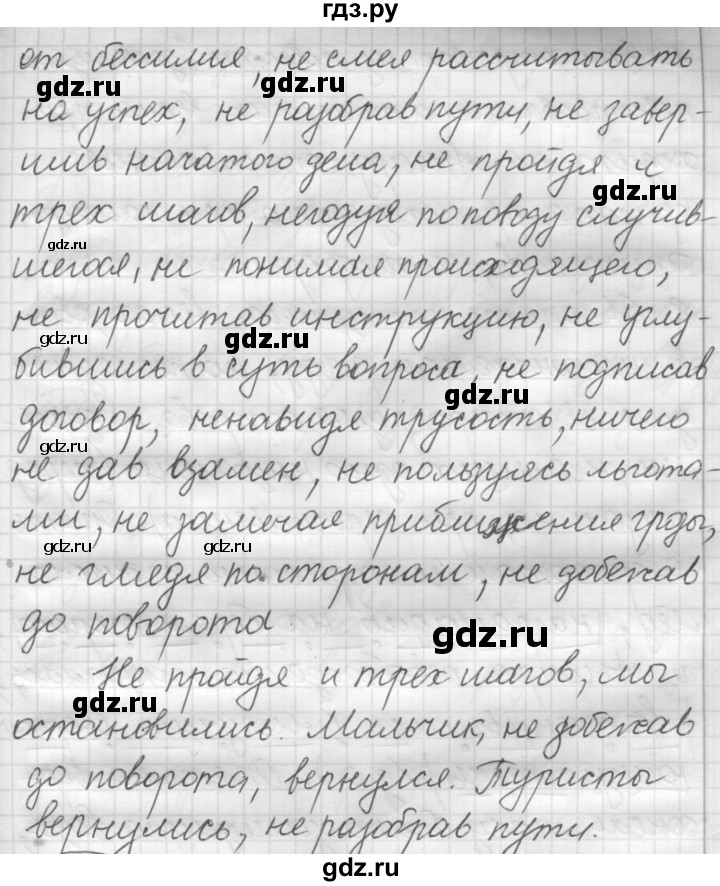 гдз.ру
от бессилия, не смея рассчитывать
gdz.ru gdz.ru
на успех, не разобрав пути, не завер-
шив начатого дела, не пройдя и
gdz.ru
трех шагов, негодуя по поводу случив-
gdz.ru
шегося, не понимая происходящего,
не прочитав инструкцию, не углу-
gdz.ru gdz.ru
бившись в суть вопроса, не подписав
gdz.ru
договор, ненавидя трусость, ничего
gdz.ru
не дав взамен, не пользуясь льгота-
ми, не замечая приближения грды,
gdz.ru gdz.ru
не глядя по сторонам, не добежав
до поворота
gdz.ru
Не пройдя и трех шагов, мы
gdz.ru
остановились. Мальчик, не добежав
до поворота, вернулся. Туристы
gdz.ru
вернулись, не разобрав пути.
gdz.ru